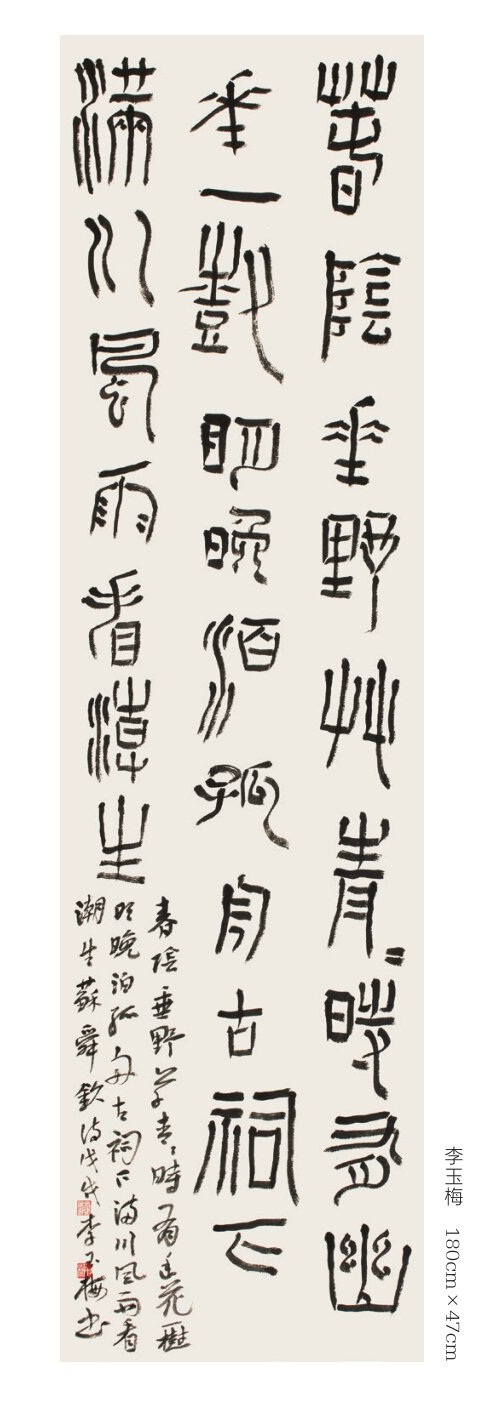 春陰垂野草青〻時有幽
華一樹明晚泊孤舟古祠下
滿川風雨看潮生
春陰垂野草青〻時有幽花一樹
明晚泊孤舟古祠下滿川風雨看
潮生蘇舜欽詩戊戌李玉梅書
李玉梅 180cm×47cm